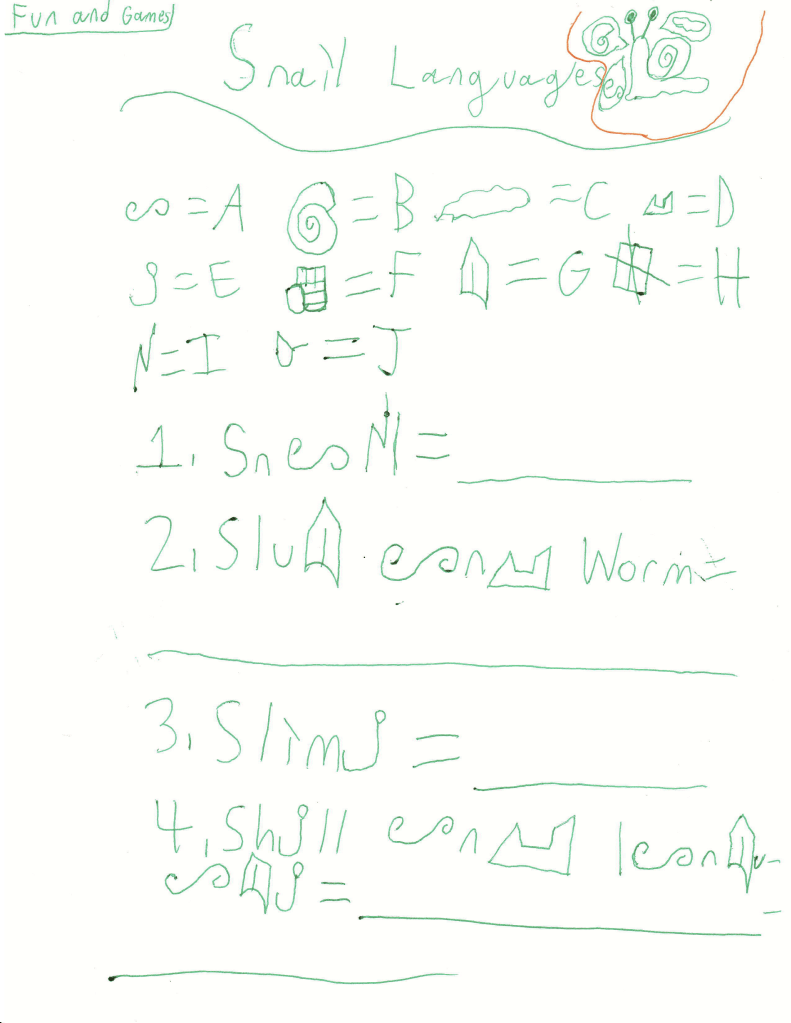 Fun and Games
Snail Languages
= A = B = C = D
= E = F = G = H
= I = J
1. Sn =
2. Slu n Worm =
3. Slim =
4. Sh ll n l n u-
=